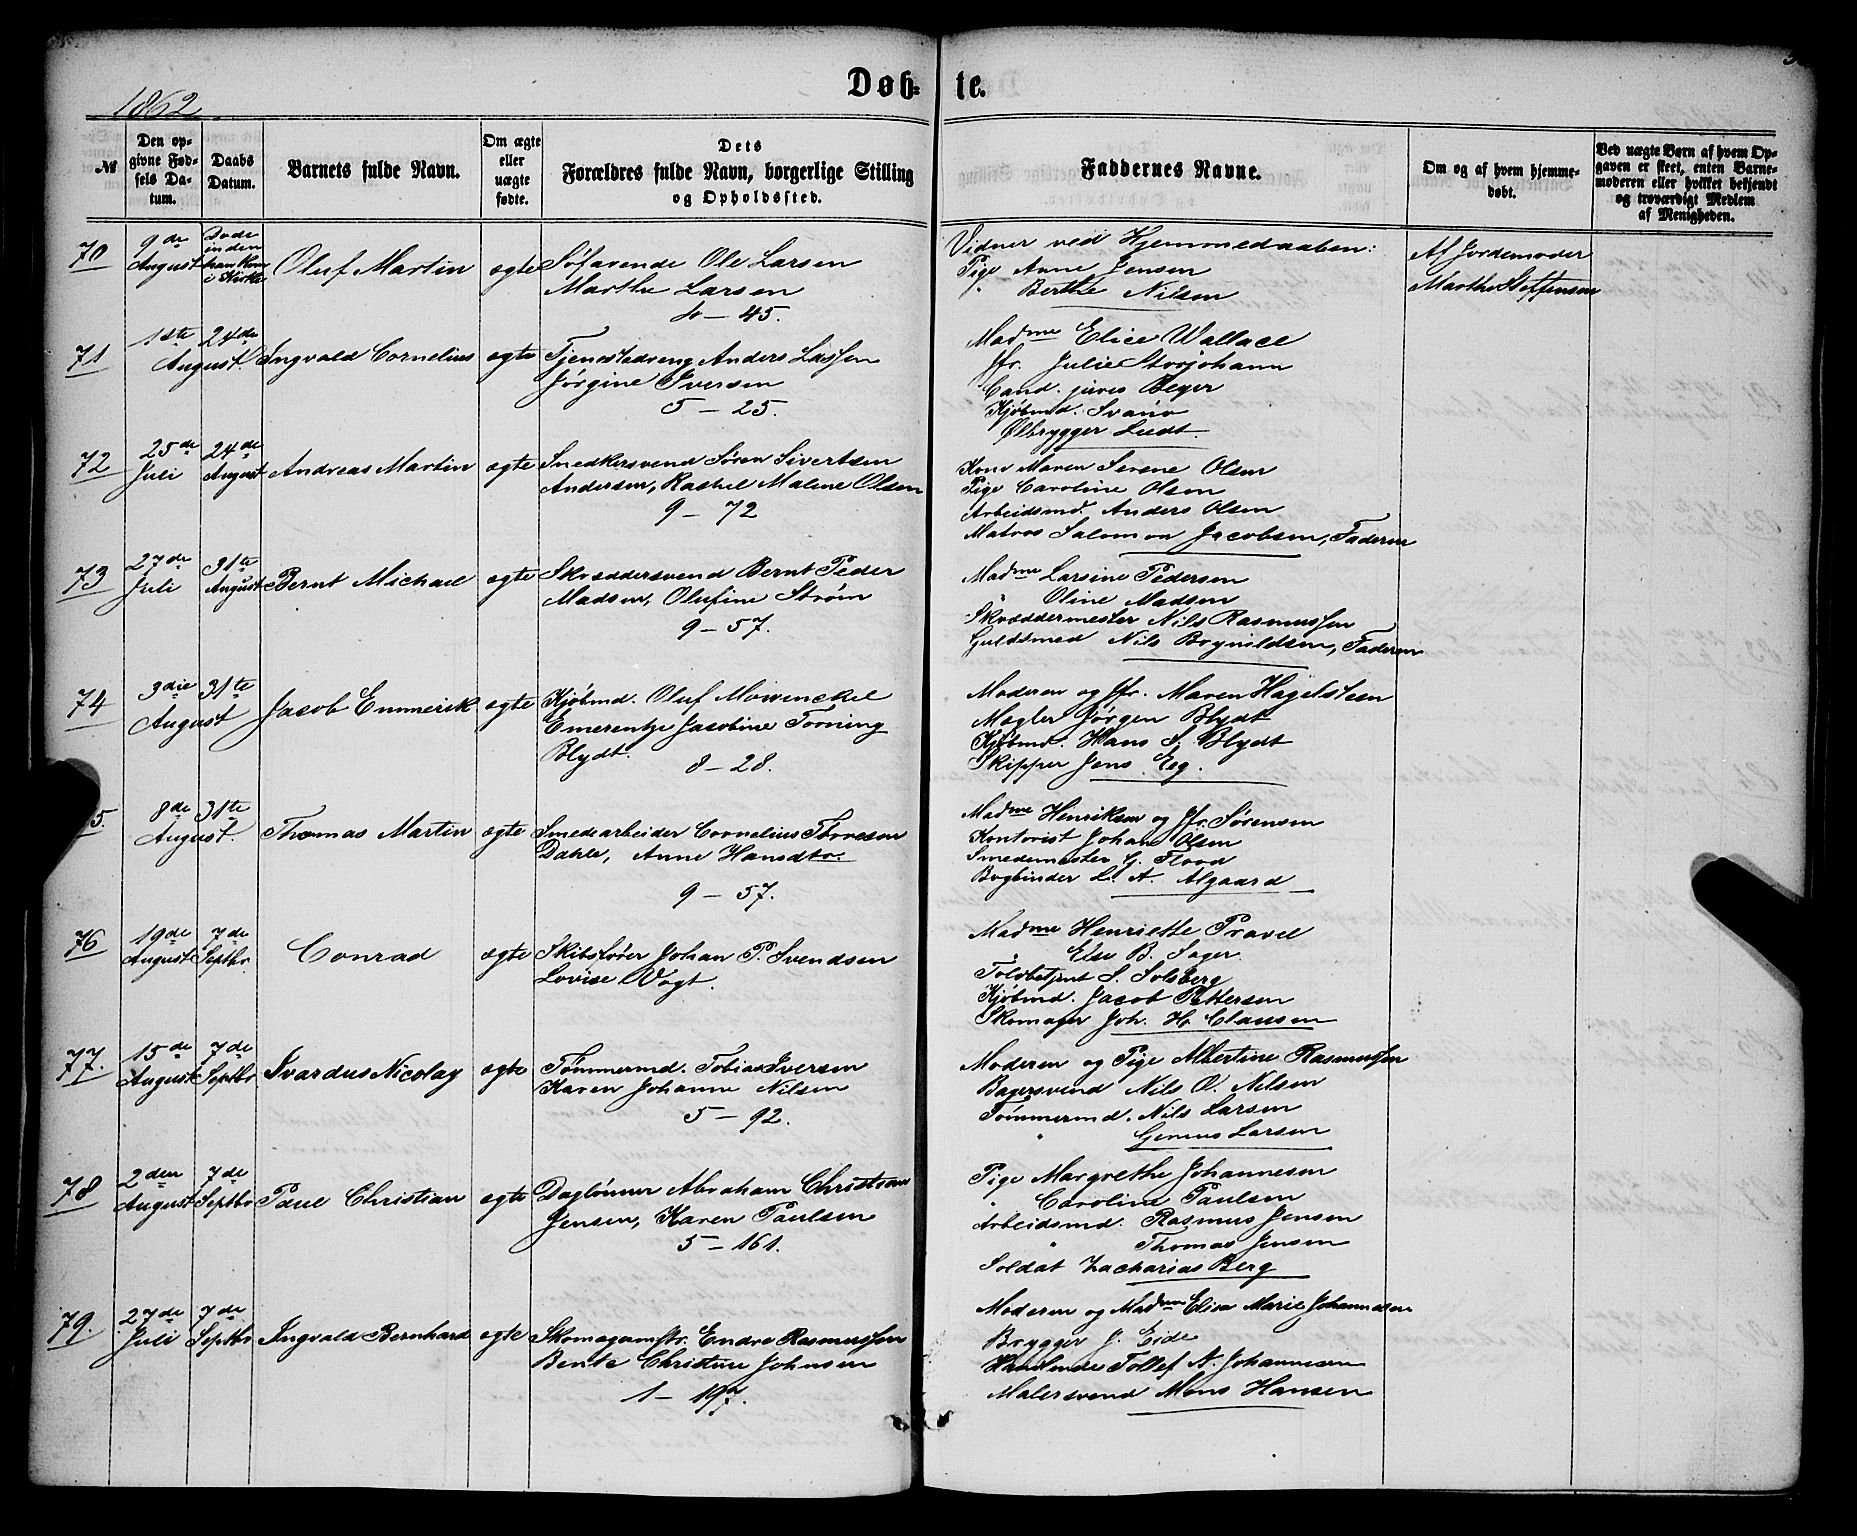 1862
Døb-
te.
№
Den op-
givne Fød-
sels Da-
tum.
Daabs
Datum.
Barnets fulde Navn.
Om ægte
eller
uægte
fødte.
Dets
Forældres fulde Navn, borgerlige Stilling
og Opholdssted.
Faddernes Navne.
Om og af hvem hjemme-
døbt.
Ved uægte Børn af hvem Op-
gaven er skeet, enten Barne-
moderen eller hvilket bekjendt
og troværdigt Medlem
af Menigheden.
70
9de
August
Døde
inden
han kom
i Kirke
Oluf Martin
ægte
Søfarende Ole Larsen
Marthe Larsen
45.
Vidner ved Hjemmedaaben:
Pige Anne Jensen
" Berthe Nilsen
Af Jordemoder
Marthe Steffensen
71
1ste
August
24de
August
Ingvald Cornelius
ægte
Anders Lassen
Jørgine Iversen
5 - 25.
Madme Elice Wallace
Jfr. Julie Storjohann
Cand. juris Beyer
Kjøbmd. Svanø
Ølbrygger Lledt
72
25de
Juli
24de
August
Andreas Martin
ægte
Snedkersvend Søren Sivertsen
Andersen, Rachel Malene Olsen
9 - 72
Kone Maren Serene Olsen
Pige Caroline Olsen
Arbeidsmd. Anders Olsen
Matros Salomon Jacobsen, Faderen
73
27de
Juli
31te
August
Bernt Michael
ægte
Skræddersvend Bernt Peder
Madsen, Olufine Strøm
9 - 57.
Madme Larsine Pedersen
" Oline Madsen
Skræddermester Nils Rasmussen
Guldsmed Nils Bognildsen, Faderen
74
3die
August
31te
Jacob Emmerik
ægte
Kjøbmd. Oluf Mowinckel
Emerentze Jacobine Torning
Blydt.
8 - 28.
Moderen og Jfr. Maren Hagelsteen
Mægler Jørgen Blydt
Kjøbmd. Hans S. Blydt
Skipper Jens Eeg.
5.
8de
August.
31te
Thomas Martin
ægte
Smedearbeider Cornelius Thoresen
Dahle, Anne Hansdtr.
9 - 57.
Madme Henriksen og Jfr. Sørensen
Kontorist Johan Olsen
Smedemester G. Flood
Bogbinder L. A. Algaard
76
19de
August
7de
Septbr.
Conrad
ægte
Skibsfører Johan P. Svendsen
Lovise Vogt.
Madme Henriette Pravel
" Else B. Sager
Toldbetjent S. Solberg
Kjøbmd. Jacob Pettersen
Skomager Joh. H. Clausen
77.
15de
August
7de
Septbr
Ivardus Nicolay
ægte
Tømmermd. Tobias Iversen
Karen Johanne Nilsen
5 - 92.
Moderen og Pige Albertine Rasmussen
Bagersvend Nils O. Nilsen
Tømmermd. Nils Larsen
" Larsen
78
2den
August
7de
Septbr
Paul Christian
ægte
Daglønner Abraham Christian
Jensen, Karen Paulsen
5 - 161.
Pige Margrethe Johannesen
" Caroline Paulsen
Arbeidsmd. Rasmus Jensen
" Thomas Jensen
Soldat Zacharias Berg
79.
27de
Juli
7de
Septbr
Ingvald Bernhard
ægte
Skomagermstr. Endre Rasmussen
Bente Christine Johnsen
1 - 197.
Moderen og Madme Elisa Marie Johannesen
Brygger J. Eide
Handlende Tollef A. Johannesen
Malersvend Mons Hansen